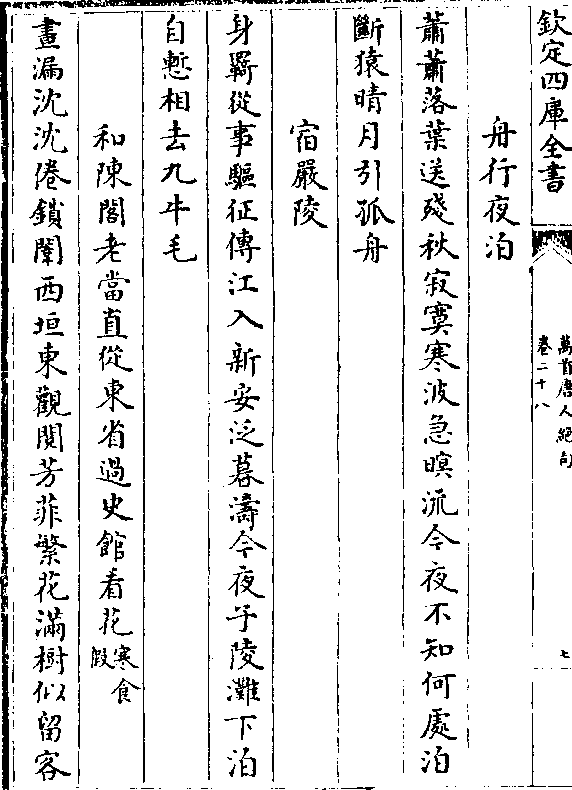 欽定四庫全書
萬首唐人絕句
卷二十八
七
舟行夜泊
蕭蕭落葉送殘秋寂寞寒波急暝流今夜不知何處泊
斷猿晴月引孤舟
宿嚴陵
身羈從事驅征傳江入新安泛暮濤今夜子陵灘下泊
自慙相去九牛毛
和陳閣老當直從東省過史館看花寒食
假
晝漏沈沈倦鎖闈西垣東觀閱芳菲繁花滿樹似留客